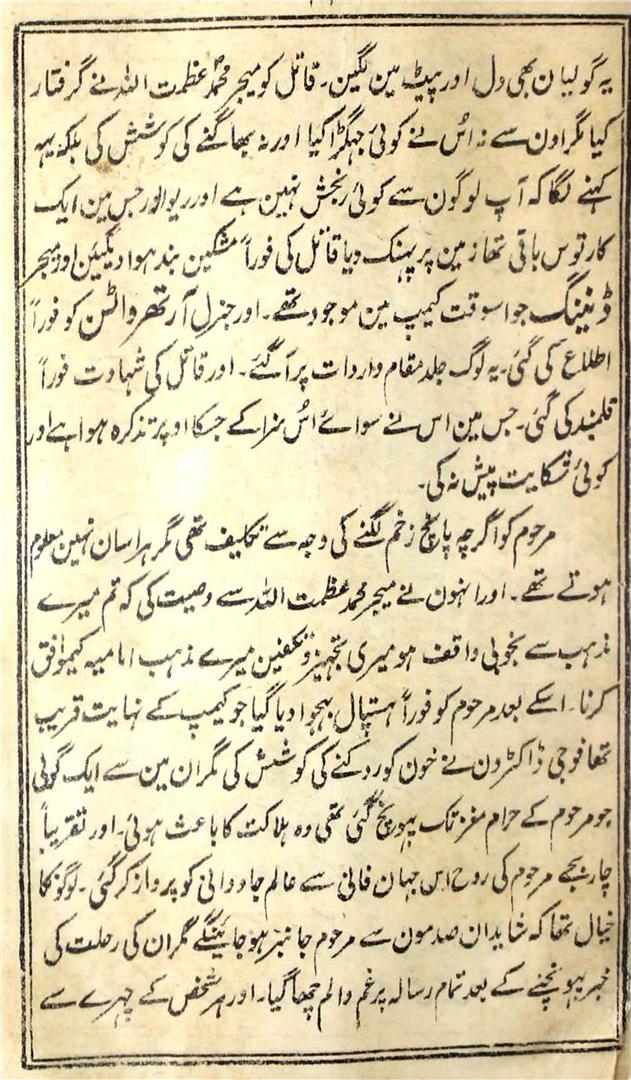 یہ گولیان بھی دل اور پیٹ مین لگین۔ قاتل کو میجر محمد عظمت اللہ نے گرفتار
کیا مگر اون سے نہ اُس نے کوئی جھگڑا کیا اور نہ بھاگنے کی کوشش کی بلکہ یہہ
کہنے لگا کہ آپ لوگون سے کوئی رنجش نہین ہے اور ریوالور جس مین ایک
کارتوس باقی تھا زمین پر پھنک دیا قاتل کی فوراً مشکین بندہوا دیگئین اور میجر
ڈنینگ جو اسوقت کیمپ مین موجود تھے۔ اور جنرل آرتھر واٹسن کو فوراً
اطلاع کی گئی۔ یہ لوگ جلد مقام واردات پر آگئے۔ اور قاتل کی شہادت فوراً
قلمبند کی گئی۔ جس مین اس نے سوائے اُس سزا کے جسکا اوپر تذکرہ ہوا ہے اور
کوئی شکایت پیش نہ کی۔
مرحوم کو اگرچہ پانچ زخم لگنے کی وجہ سے تکلیف تھی مگر ہراسان نہین معلوم
ہوتے تھے۔ اور انہون نے میجر محمد عظمت اللہ سے وصیت کی کہ تم میرے
مذہب سے بخوبی واقف ہو میری تجہیز و تکفین میرے مذہب امامیہ کیموافق
کرنا۔ اسکے بعد مرحوم کو فوراً ہسپتال بھجوا دیا گیا جو کیمپ کے نہایت قریب
تھا فوجی ڈاکٹرون نے خون کو روکنے کی کوشش کی مگر ان مین سے ایک گولی
جو مرحوم کے حرام مغز تک پہونچ گئی تھی وہ ہلاکت کا باعث ہوئی۔ اور تقریباً
چار بجے مرحوم کی روح اس جہان فانی سے عالم جاودانی کو پرواز کر گئی۔ لوگونکا
خیال تھا کہ شاید ان صدمون سے مرحوم جانبر ہو جائینگے مگر ان کی رحلت کی
خبر پہونچنے کے بعد تمام رسالہ پر غم و الم چھا گیا۔ اور ہر شخص کے چہرے سے